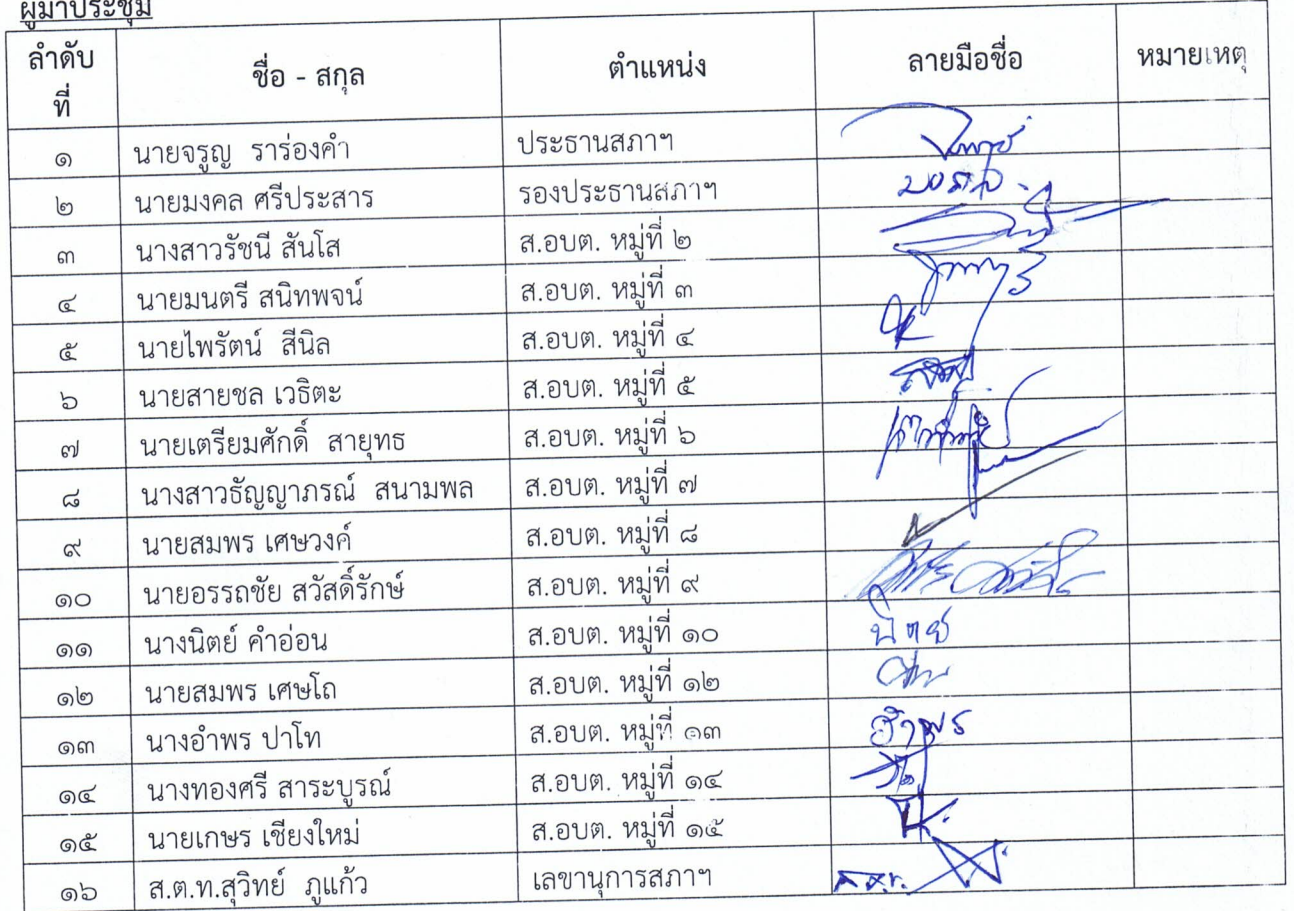 ผู้มาประชุม
ลำดับที่ ชื่อ - สกุล ตำแหน่ง ลายมือชื่อ หมายเหตุ
๑ นายจรูญ รารองคำ ประธานสภาฯ
๒ นายมงคล ศรีประสาร รองประธานสภาฯ มงคล
๓ นางสาวรัชนี สันโส ส.อบต. หมู่ที่ ๒
๔ นายมนตรี สนิทพจน์ ส.อบต. หมู่ที่ ๓
๕ นายไพรัตน์ สีนิล ส.อบต. หมู่ที่ ๔
๖ นายสายชล เวธิตะ ส.อบต. หมู่ที่ ๕
๗ นายเตรียมศักดิ์ สายุทธ ส.อบต. หมู่ที่ ๖
๘ นางสาวธัญญาภรณ์ สนามพล ส.อบต. หมู่ที่ ๗
๙ นายสมพร เศษวงค์ ส.อบต. หมู่ที่ ๘
๑๐ นายอรรถชัย สวัสดิ์รักษ์ ส.อบต. หมู่ที่ ๙
๑๑ นางนิตย์ คำอ่อน ส.อบต. หมู่ที่ ๑๐ นิตย์
๑๒ นายสมพร เศษโถ ส.อบต. หมู่ที่ ๑๒
๑๓ นางอำพร ปาโท ส.อบต. หมู่ที่ ๑๓ อำพร
๑๔ นางทองศรี สาระบูรณ์ ส.อบต. หมู่ที่ ๑๔
๑๕ นายเกษร เชียงใหม่ ส.อบต. หมู่ที่ ๑๕
๑๖ ส.ต.ท.สุวิทย์ ภูแก้ว เลขานุการสภาฯ